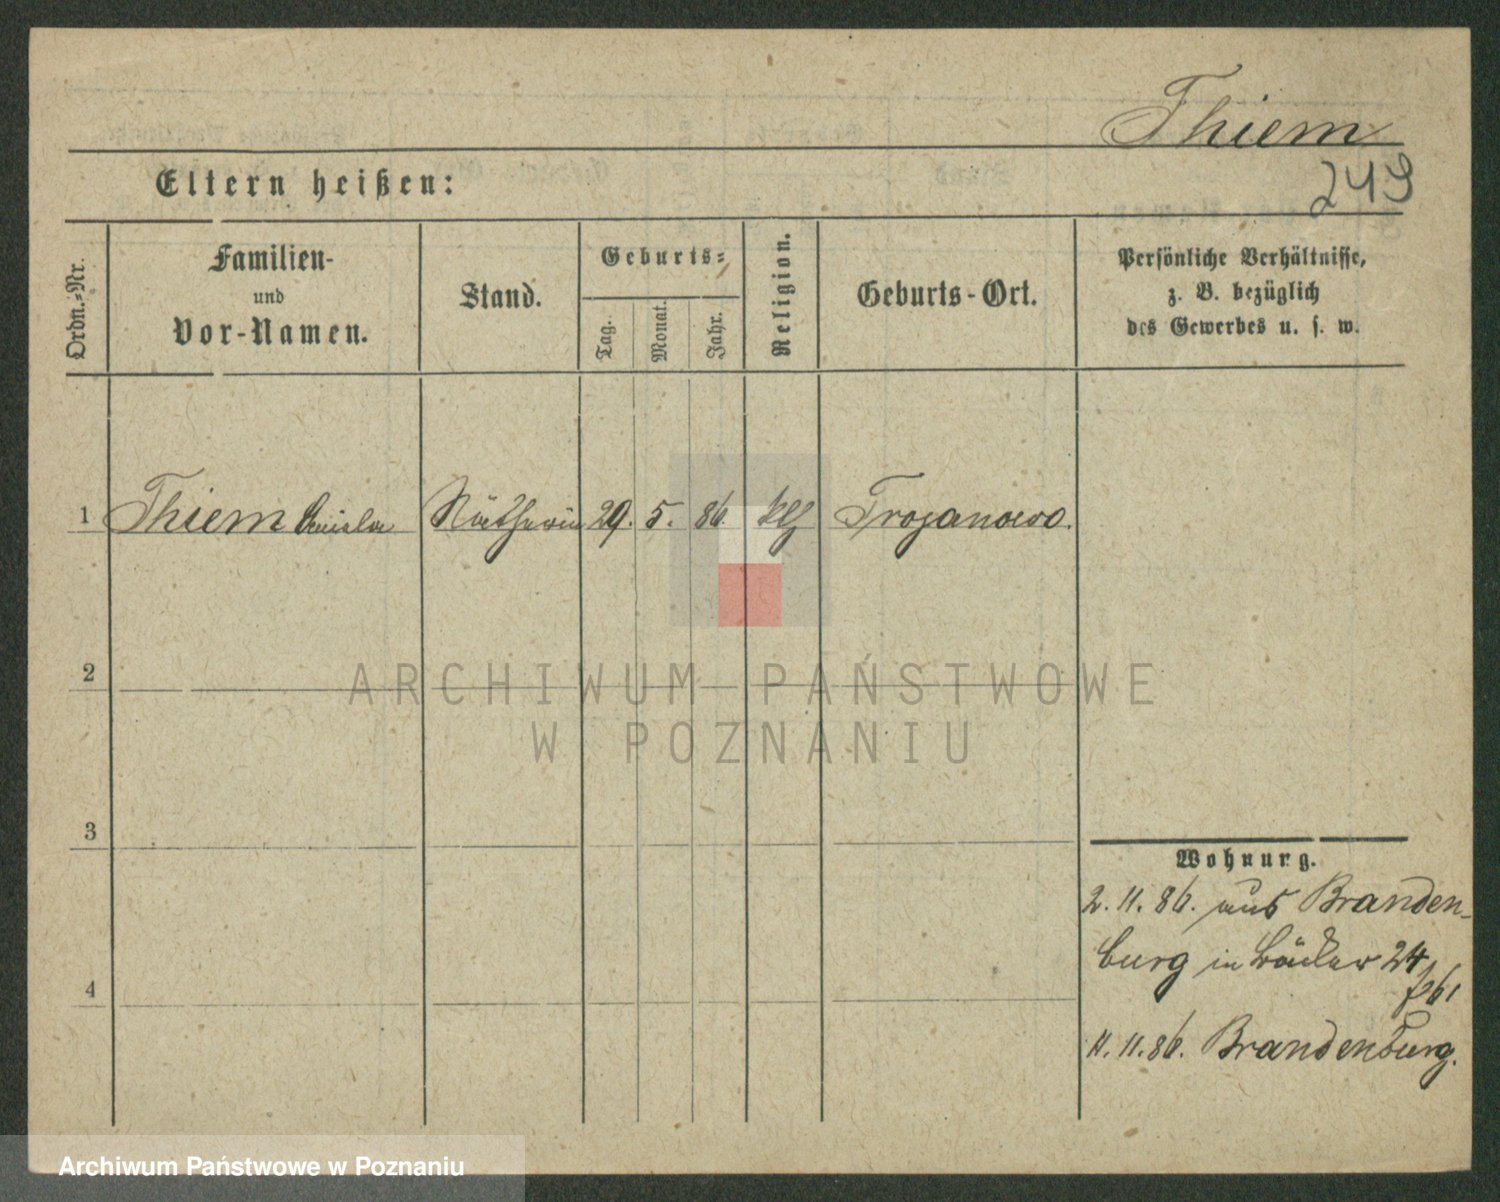 Thiem
249
Eltern heißen:
Ordn.-Nr.
Familien-
und
Vor-Namen.
Stand.
Geburts-
Tag.
Monat.
Jahr.
Religion.
Geburts-Ort.
Persönliche Verhältnisse,
z. B. bezüglich
des Gewerbes u. s. w.
1 Thiem Näatherin 29. 5. 86. Trojanowo.
2
3
4
Wohnung.
2. 11. 86. aus Branden-
burg in Bäcker 24
11. 11. 86. Brandenburg.
ARCHIWUM PAŃSTWOWE
W POZNANIU
Archiwum Państwowe w Poznaniu